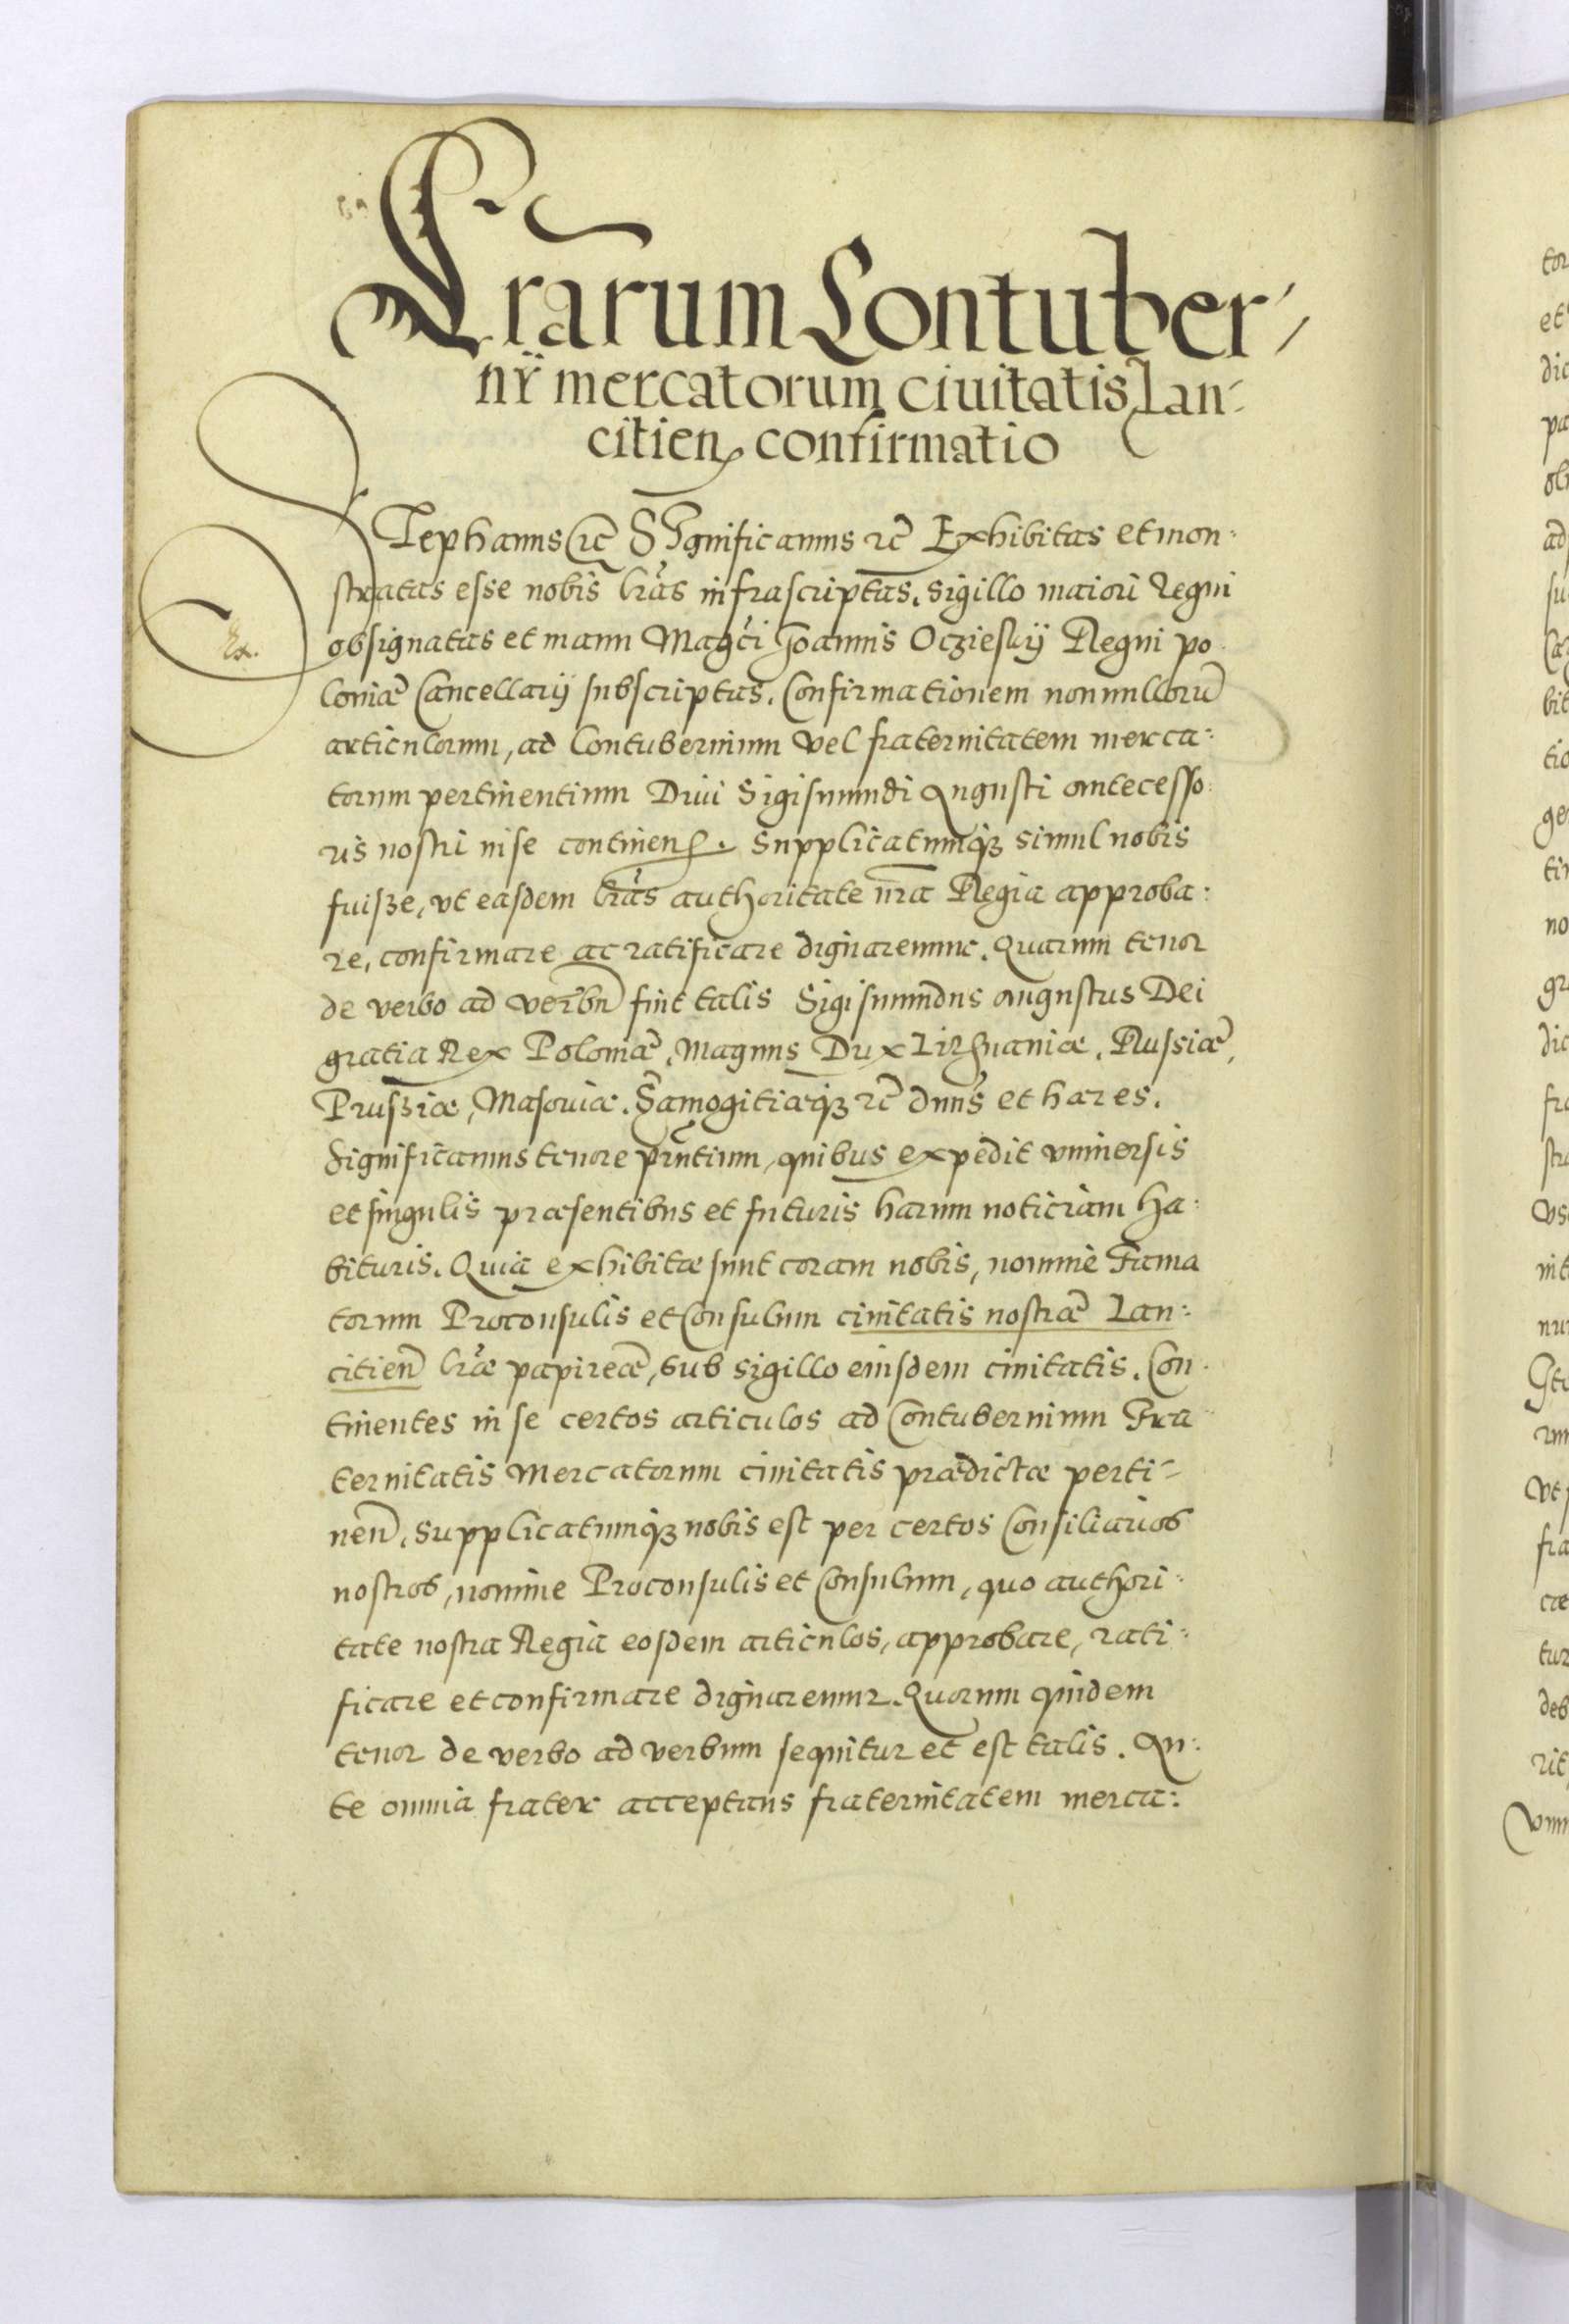 Lrarum Contuber,
nÿ mercatorum ciuitatis Lan-
citien confirmatio
Stephanus etc̄ Significamus etc̄ Exhibitas et mon:
stratas esse nobis lrãs infrascriptas, sigillo maiori Regni
obsignatas et manu Magci Joannis Oczieskij Regni po
loniæ Cancellarij subscriptas. Confirmationem nonnulloru
articulorum, ad Contubernium vel fraternitatem merca:
torum pertinentium Diui Sigismundi Augusti antecesso
ris nostri in se continen. Supplicatumq3 simul nobis
fuisse, vt easdem lrãs authoritate nra Regia approba:
re, confirmare ac ratificare dignaremur. Quarum tenor
de verbo ad verbu fuit talis Sigismundus augustus Dei
gratia Rex Poloniæ, Magnus Dux Lithuaniæ, Russiæ,
Prussiæ, Masouiæ, Samogitiæq3 etc̄ dnns et hæres.
Significamus tenore prntium, quibus expedit vniuersis
et singulis præsentibus et futuris harum noticiam ha:
bituris. Quia exhibitæ sunt coram nobis, nomine Fama
torum Proconsulis et Consulum ciuitatis nostræ Lan:
citien lræ papireæ, sub sigillo eiusdem ciuitatis. Con
tinentes in se certos articulos ad Contubernium Fra
ternitatis Mercatorum ciuitatis prædictæ perti-
nen, Supplicatumq3 nobis est per certos Consiliarios
nostros, nomine Proconsulis et Consulum, quo authori:
tate nostra Regia eosdem articulos, approbare, rati:
ficare et confirmare dignaremur. Quorum quidem
tenor de verbo ad verbum sequitur et est talis. An:
te omnia frater acceptans fraternitatem merca: